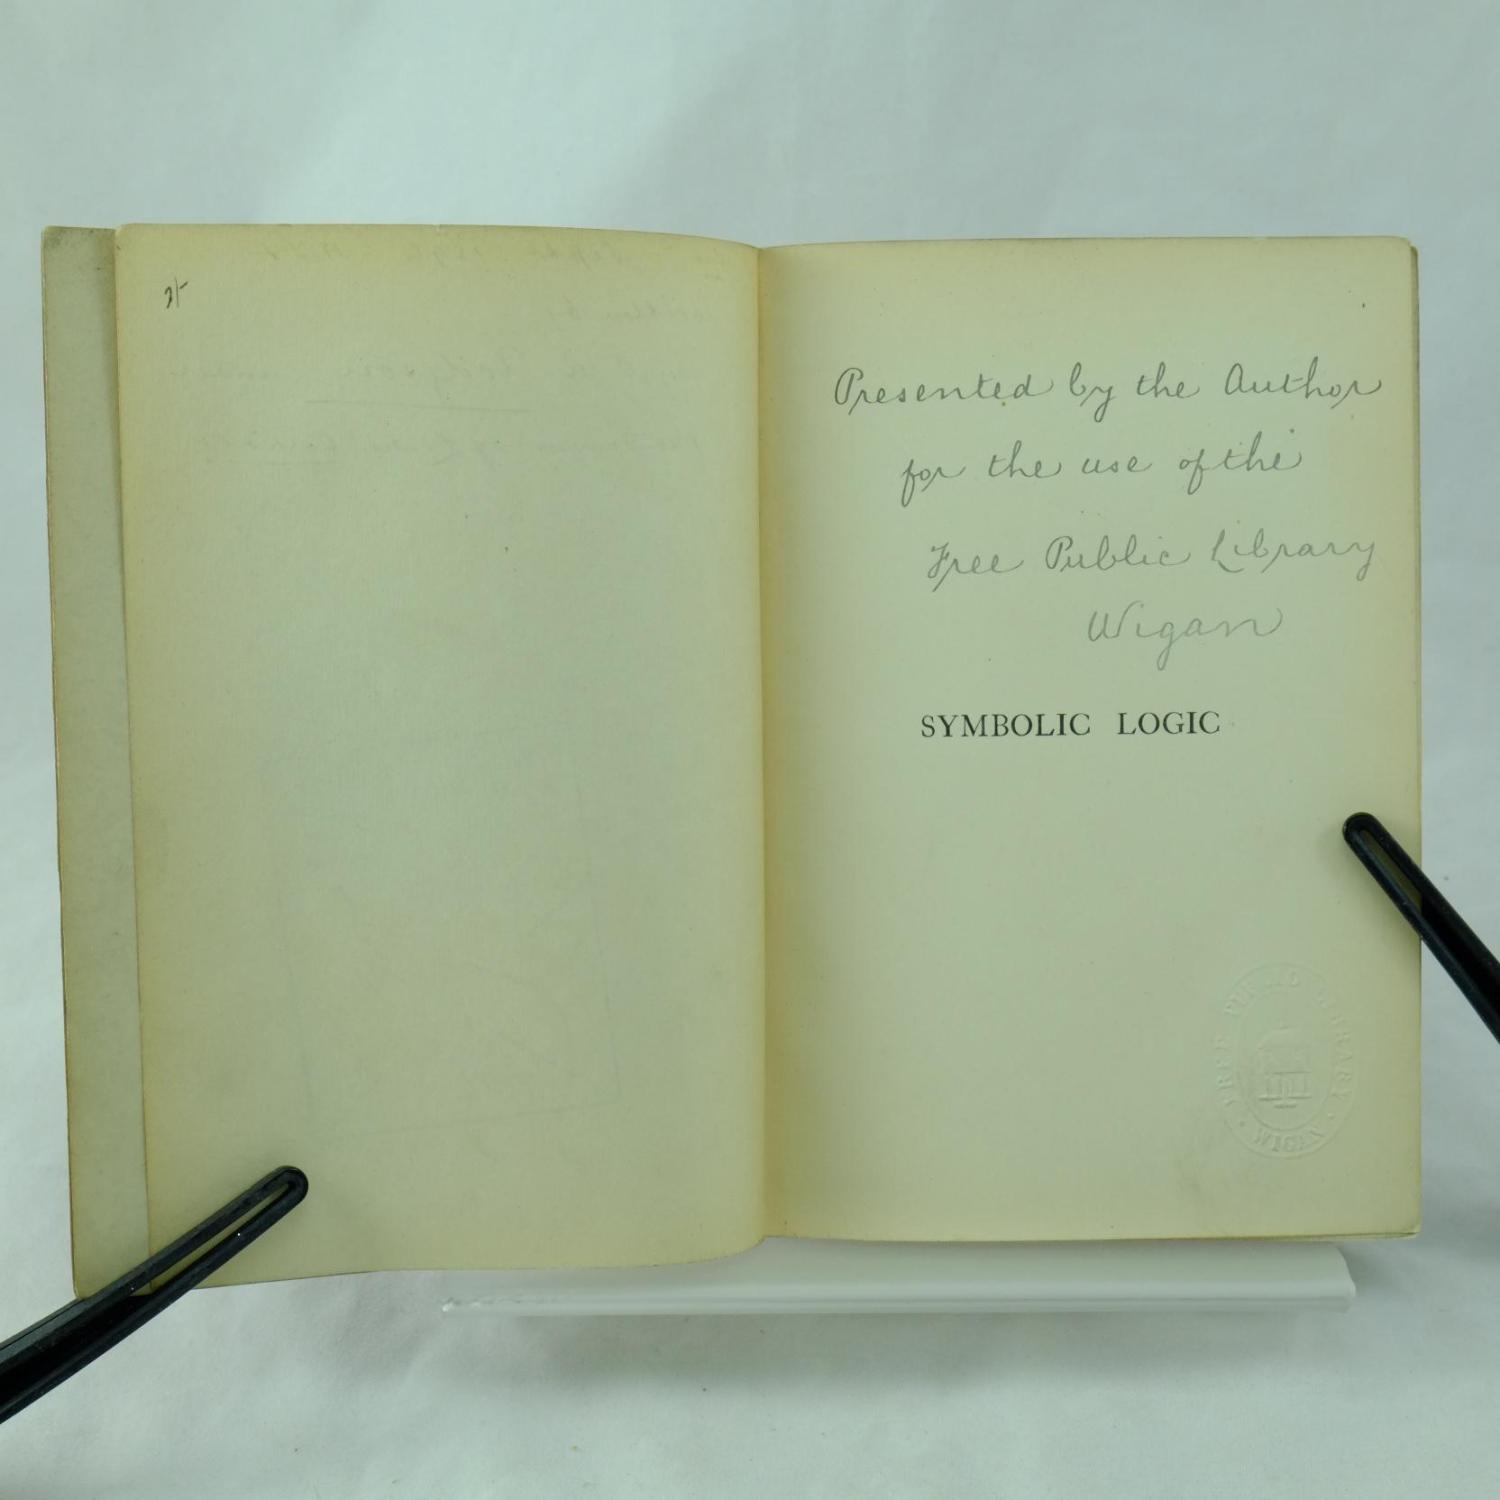 Presented by the Author
for the use of the
Free Public Library
Wigan
SYMBOLIC LOGIC
FREE PUBLIC LIBRARY
WIGAN